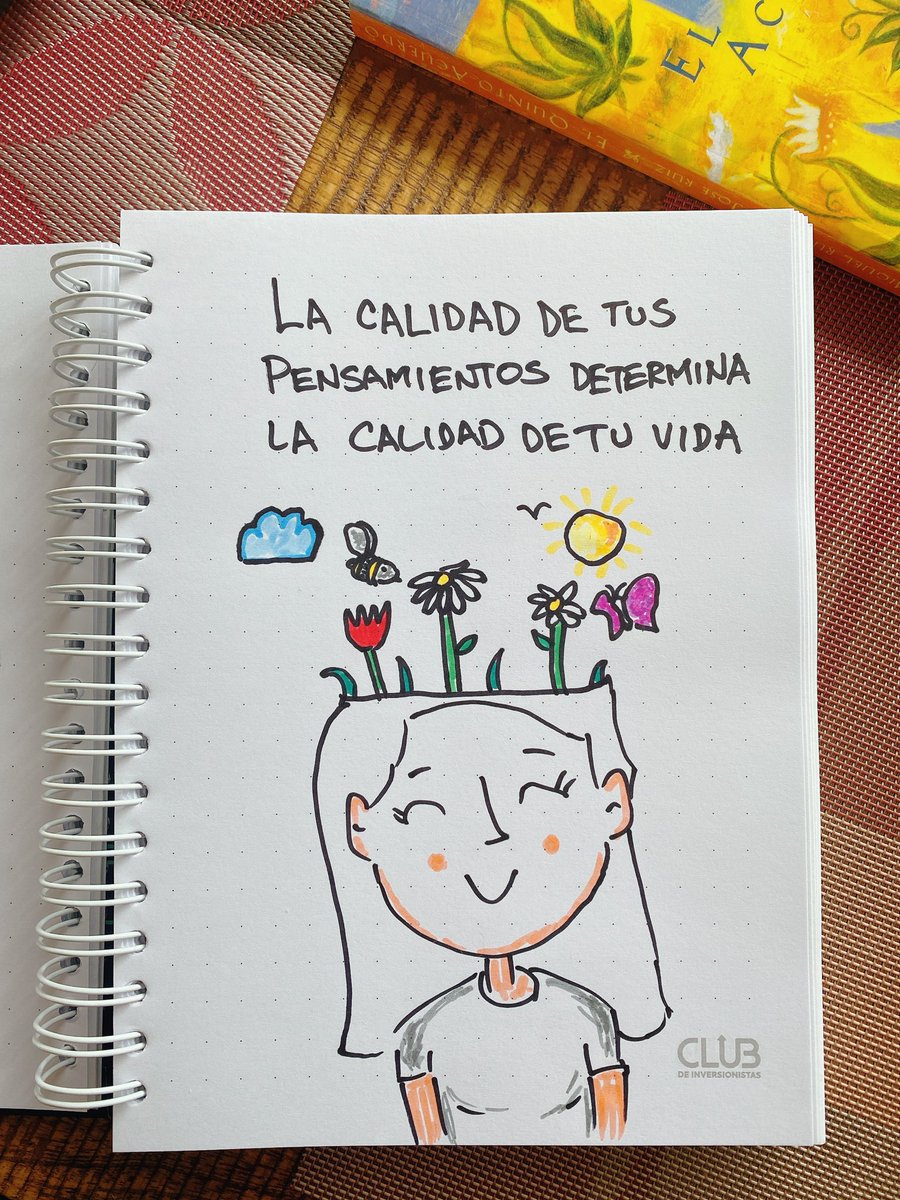 EL
AC
JOSÉ RUIZ EL QUINTO ACUERDO
LA CALIDAD DE TUS
PENSAMIENTOS DETERMINA
LA CALIDAD DE TU VIDA
CLUB
DE INVERSIONISTAS